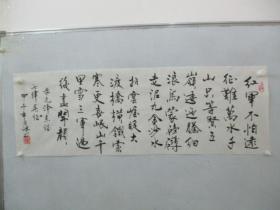 紅軍不怕遠
征難萬水千
山只等閒五
嶺逶迤騰細
浪烏蒙磅礴
走泥丸金沙水
拍雲崖暖大
渡橋橫鐵索
寒更喜岷山千
里雪三軍過
後盡開顏
七律長征